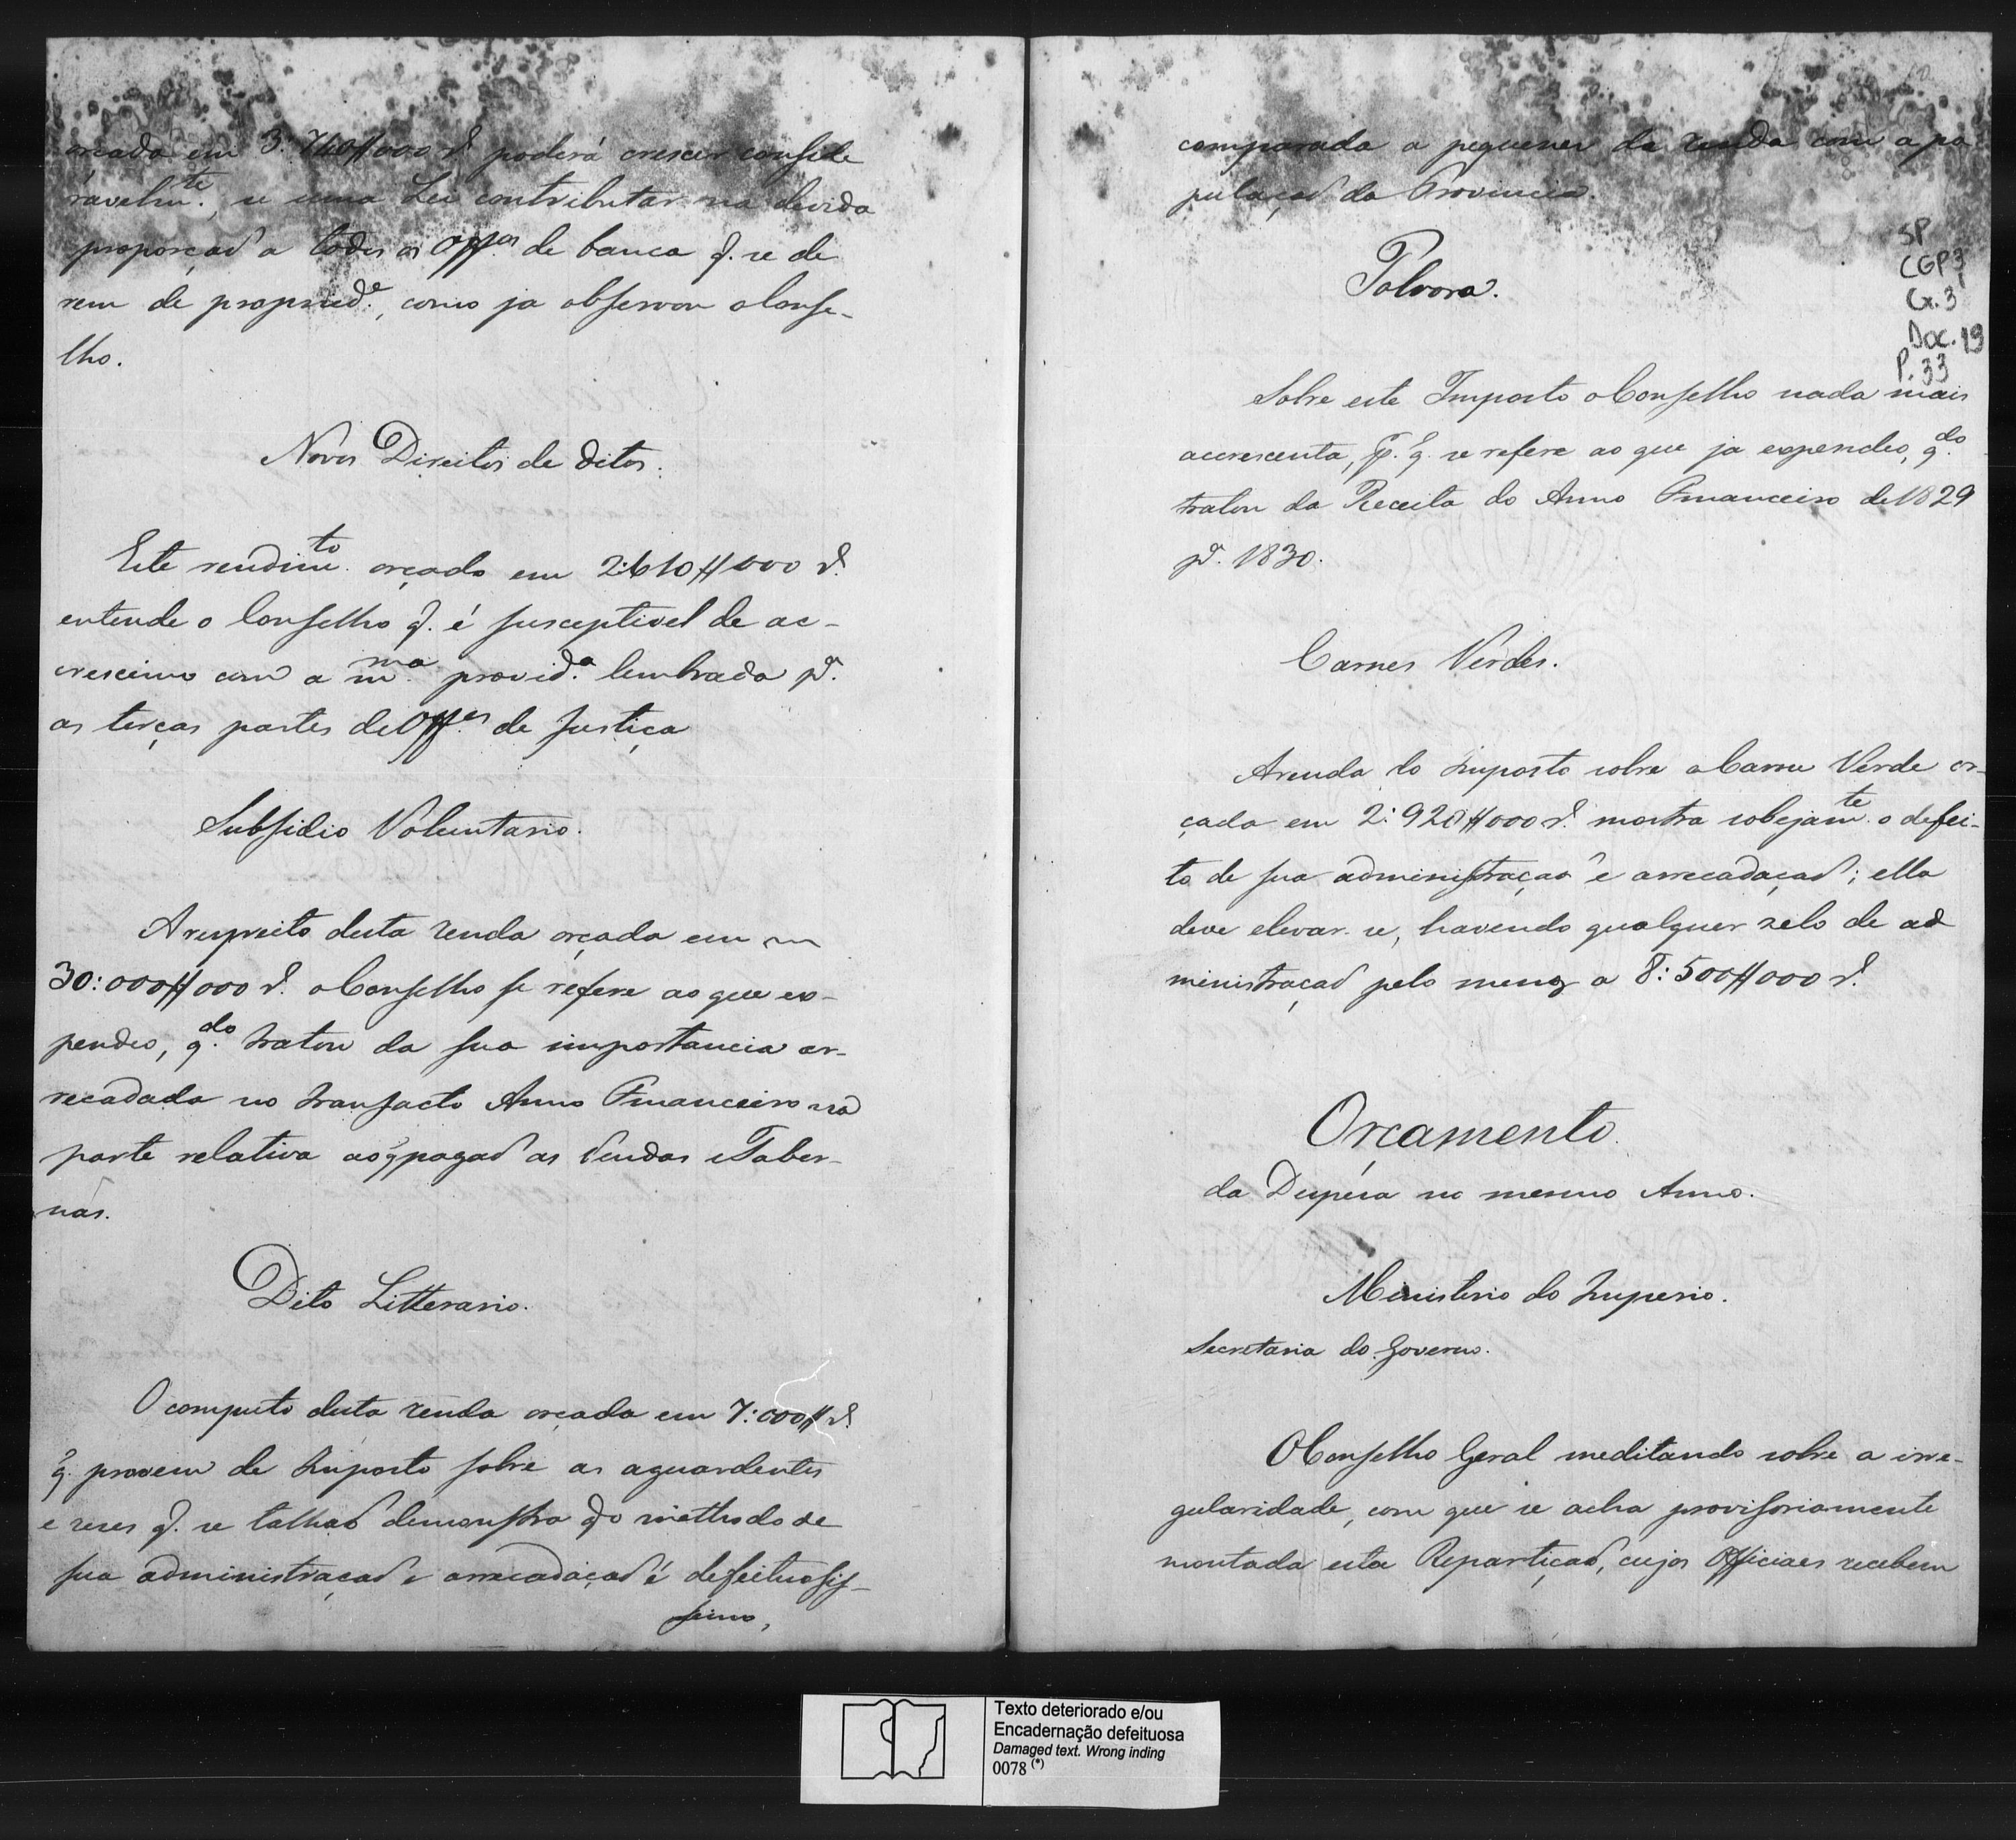 orçada em 3:740$000 r.s poderá crescer conside
ravelm.te, se uma Lei contributar na devida
proporçaõ a todos os Off.os de banca q. se de
rem de propried.e, como ja observou o Conse-
lho.
Novos Direitos de ditos.
Este rendim.to orçado em 2:610$000 r.s
entende o Conselho q. é susceptivel de ac-
crescimo com a m.ma provid.a lembrada p.a
as terças partes de Off.os de Justiça
Subsidio Voluntario.
A respeito desta renda orçada em
30:000$000 r.s o Conselho se refere ao que ex-
pendeo, q.do tratou da sua importancia ar-
recadada no transacto Anno Financeiro na
parte relativa ao q pagaõ as Vendas e Taber-
nas.
Dito Litterario.
O computo desta renda orçada em 7:000$ r.s
q. provem de Imposto sobre as aguardentes
e reses q. se talhaõ demonstra q o methodo de
sua administraçaõ e arrecadaçaõ é defeituosis-
simo,
comparada a pequenez da renda com a po
pulaçaõ da Provincia.
SP
CGP3
Cx. 3
Doc. 19
P. 33
Polvora.
Sobre este Imposto o Conselho nada mais
accrescenta, p. q. se refere ao que ja expendeo, q.do
tratou da Receita do Anno Financeiro de 1829
p.a 1830.
Carnes Verdes.
A renda do Imposto sobre a Carne Verde or-
çada em 2:920$000 r.s mostra sobejam.te o defei-
to de sua administraçaõ e arrecadaçaõ; ella
deve elevar-se, havendo qualquer zelo de ad
ministraçaõ pelo menos a 8:500$000 r.s
Orçamento
da Despesa no mesmo Anno.
Ministerio do Imperio.
Secretaria do Governo.
O Conselho Geral meditando sobre a irre-
gularidade, com que se acha provisoriamente
montada esta Repartiçaõ, cujos Officiaes recebem
Texto deteriorado e/ou
Encadernação defeituosa
Damaged text. Wrong inding
0078 (*)